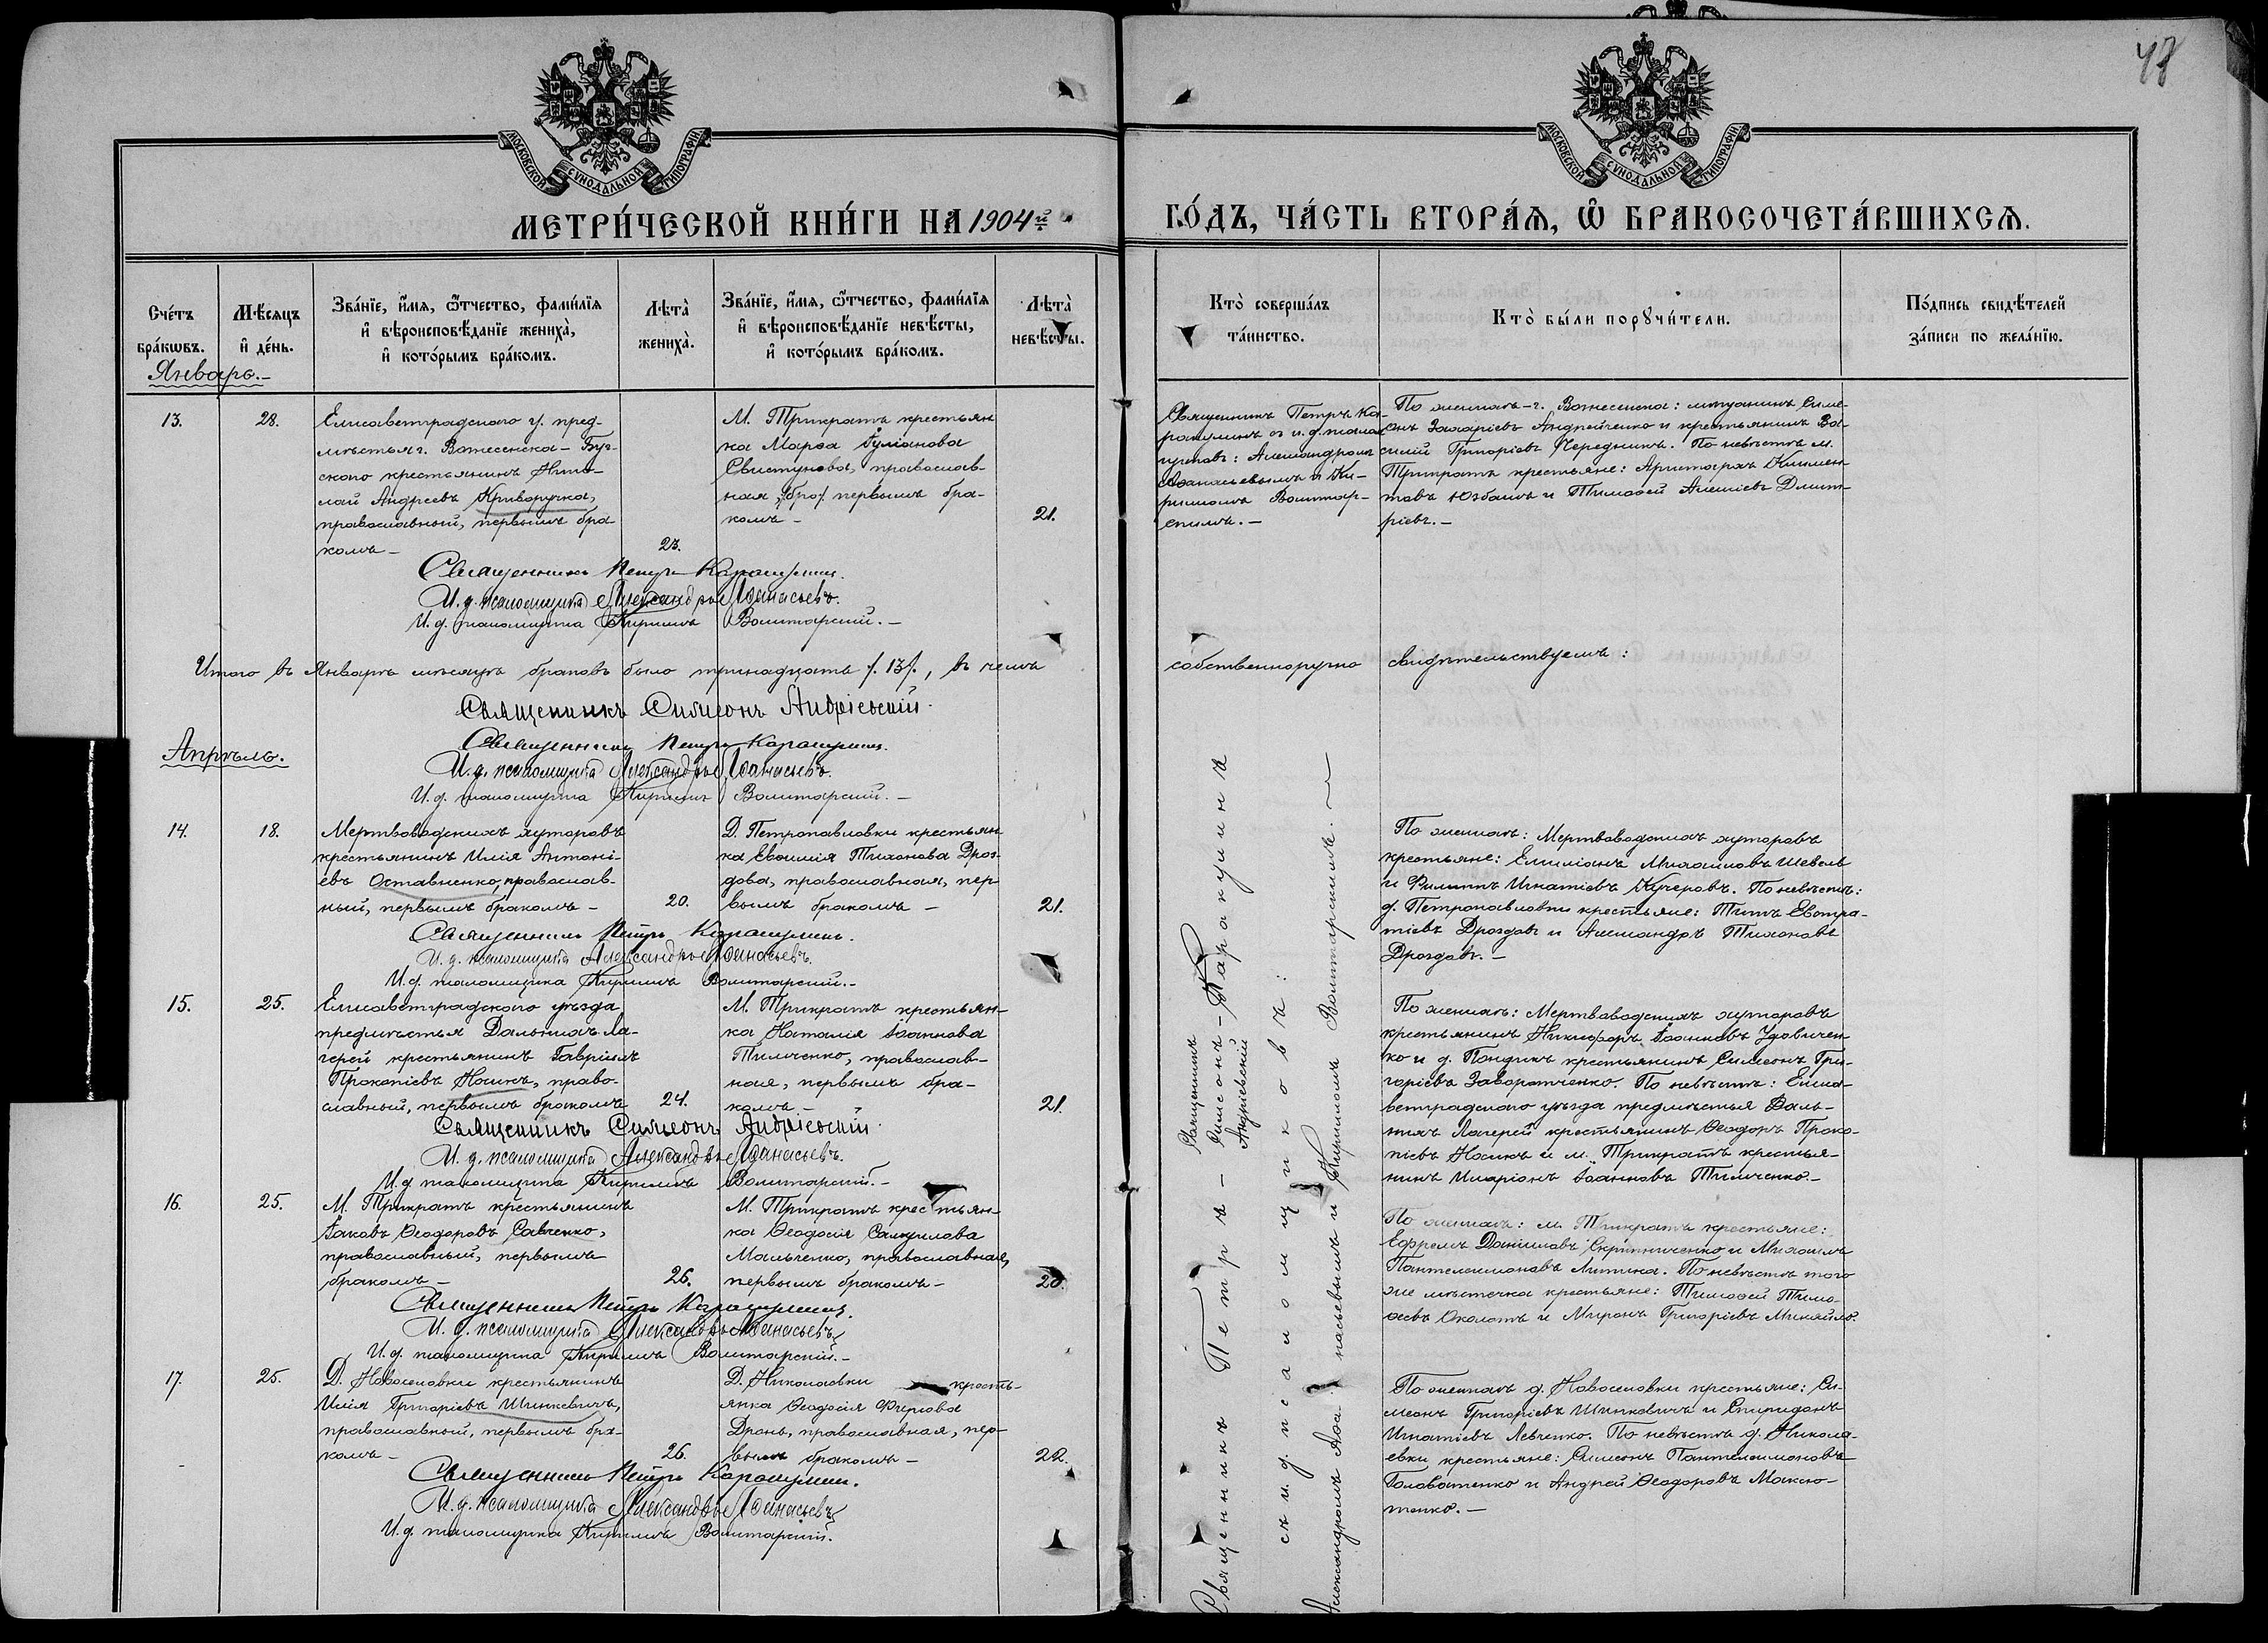 48
МОСКОВСКОЙ СѴНОДАЛЬНОЙ ТИПОГРАФІИ
МОСКОВСКОЙ СѴНОДАЛЬНОЙ ТИПОГРАФІИ
МЕТРИ́ЧЕСКОЙ КНИ́ГИ НА 1904й
ГО́ДЪ, ЧА́СТЬ ВТОРА́Я, Ѿ БРАКОСОЧЕТА́ВШИХСЯ.
Сче́тъ бра́кѡвъ.
Мѣ́сяцъ и҆ де́нь.
Зва́нїе, и҆́мя, ѻ҆́тчество, фами́лїя
и҆ вѣроисповѣ́данїе жениха̀,
и҆ кото́рымъ бра́комъ.
Лѣта̀ жениха̀.
Зва́нїе, и҆́мя, ѻ҆́тчество, фами́лїя
и҆ вѣроисповѣ́данїе невѣ́сты,
и҆ кото́рымъ бра́комъ.
Лѣта̀ невѣ́сты.
Кто̀ соверша́лъ
та́инство.
Кто̀ бы́ли порꙋчи́тели.
По́дпись свидѣ́телей
за́писи по жела́нїю.
Январь.-
13.
28.
Елисаветградскаго у. пред-
мѣстья г. Вознесенска - Буг-
скаго крестьянинъ Нико-
лай Андреевъ Криворучка,
православный, первымъ бра-
комъ -
23.
М. Трикратъ крестьян
ка Марѳа Іуліанова
Свистунова, православ-
ная, первымъ бра-
комъ -
21.
Священникъ Петръ Ка-
ракулинъ съ и. д. псалом
щиковъ: Александромъ
Аѳанасьевымъ и Ки-
рилломъ Волитар-
скимъ. -
По женихѣ - г. Вознесенска: мѣщанинъ Симе-
онъ Захаріевъ Андрейченко и крестьянинъ Ва-
силій Григоріевъ Чередникъ. По невѣстѣ м.
Трикратъ крестьяне: Аристархъ Климен-
товъ Юзбашъ и Тимоѳей Алексіевъ Дмит-
ріевъ. -
Священникъ Петръ Каракулинъ.
И. д. псаломщика Александръ Аѳанасьевъ.
И. д. псаломщика Кириллъ Волитарскій. -
Итого въ Январѣ мѣсяцѣ браковъ было тринадцать /. 13/., въ чемъ собственноручно свидѣтельствуемъ:
Священникъ Симеонъ Андріевскій.
Священникъ Петръ Каракулинъ.
И. д. псаломщика Александръ Аѳанасьевъ.
И. д. псаломщика Кириллъ Волитарскій. -
Апрѣль.
14.
18.
Мертвоводскихъ хуторовъ
крестьянинъ Илія Антоні-
евъ Оставненко, православ-
ный, первымъ бракомъ -
20.
Д. Петропавловки крестьян
ка Евѳимія Тихонова Дроз-
дова, православная, пер
вымъ бракомъ -
21.
По женихѣ: Мертвоводскихъ хуторовъ
крестьяне: Емиліанъ Михаиловъ Шевель
и Филиппъ Игнатіевъ Кучеровъ. По невѣстѣ:
д. Петропавловки крестьяне: Титъ Евстра-
тіевъ Дроздовъ и Александръ Тихоновъ
Дроздовъ. -
Священникъ Петръ Каракулинъ.
И. д. псаломщика Александръ Аѳанасьевъ.
И. д. псаломщика Кириллъ Волитарскій. -
15.
25.
Елисаветградскаго уѣзда
предмѣстья Дальнихъ Ла-
герей крестьянинъ Гавріилъ
Прокопіевъ Носикъ, право-
славный, первымъ бракомъ
24.
М. Трикратъ крестьян-
ка Наталія Іоаннова
Тимченко, православ-
ная, первымъ бра-
комъ. -
21.
По женихѣ: Мертвоводскихъ хуторовъ
крестьянинъ Никифоръ Іоанновъ Удовичен
ко и д. Пондикъ крестьянинъ Симеонъ Гри-
горіевъ Заворотченко. По невѣстѣ: Елиса-
ветградскаго уѣзда предмѣстья Даль-
нихъ Лагерей крестьянинъ Ѳеодоръ Проко-
піевъ Носикъ и м. Трикратъ крестья-
нинъ Иларіонъ Іоанновъ Тимченко. -
Священникъ Симеонъ Андріевскій.
И. д. псаломщика Александръ Аѳанасьевъ.
И. д. псаломщика Кириллъ Волитарскій. -
16.
25.
М. Трикратъ крестьянинъ
Іаковъ Ѳеодоровъ Савченко,
православный, первымъ
бракомъ -
26.
М. Трикратъ крестьян-
ка Ѳеодосія Самуилова
Мальченко, православная,
первымъ бракомъ -
20.
По женихѣ: м. Трикратъ крестьяне:
Ефремъ Даніиловъ Скрипниченко и Михаилъ
Пантелеимоновъ Литика. По невѣстѣ того
же мѣстечка крестьяне: Тимоѳей Тимо-
ѳеевъ Околотъ и Миронъ Григоріевъ Михайло.
Священникъ Петръ Каракулинъ.
И. д. псаломщика Александръ Аѳанасьевъ
И. д. псаломщика Кириллъ Волитарскій. -
17.
25.
Д. Новоселовки крестьянинъ
Илія Григоріевъ Шинкевичъ,
православный, первымъ бра-
комъ -
26.
Д. Николаевки кресть-
янка Ѳеодосія Фирсова
Дронь, православная, пер-
вымъ бракомъ -
22.
По женихѣ д. Новоселовки крестьяне: Си-
меонъ Григоріевъ Шинкевичъ и Спиридонъ
Игнатіевъ Левченко. По невѣстѣ д. Никола-
евки крестьяне: Симеонъ Пантелеимоновъ
Головатенко и Андрей Ѳеодоровъ Максю-
тенко. -
Священникъ Петръ Каракулинъ.
И. д. псаломщика Александръ Аѳанасьевъ
И. д. псаломщика Кириллъ Волитарскій.
Священникъ Петръ - Каракулинъ
Священникъ Симеонъ Андріевскій
съ и. д. псаломщиковъ:
Александромъ Аѳа- насьевымъ и Кирилломъ Волитарскимъ. -